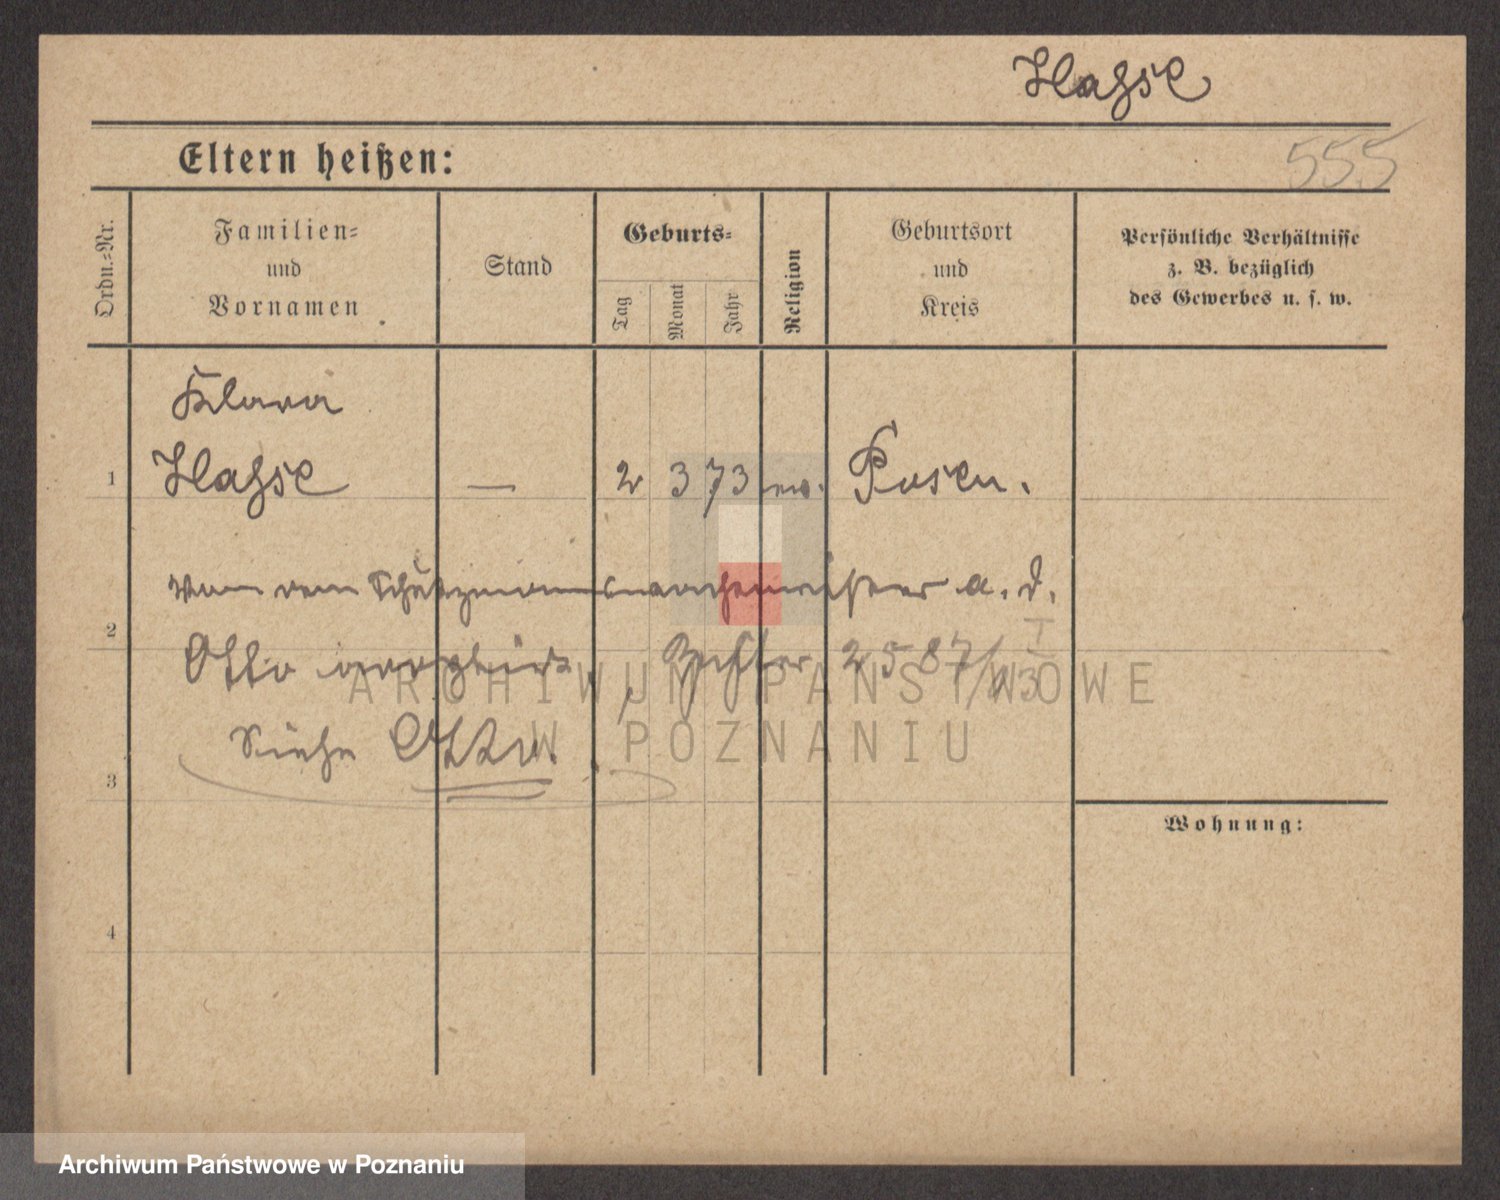 Hasse
Eltern heißen:
555
Ordn.=Nr.
Familien=
und
Vornamen
Stand
Geburts=
Tag
Monat
Jahr
Religion
Geburtsort
und
Kreis
Persönliche Verhältnisse
z. B. bezüglich
des Gewerbes u. s. w.
Klara
1 Hasse — 2 3 73 ev. Posen.
von dem Schutzmannswachtmeister a. D.
2
Otto 2 5 87
Siehe Otto.
3
Wohnung:
4
ARCHIWUM PAŃSTWOWE
W POZNANIU
Archiwum Państwowe w Poznaniu